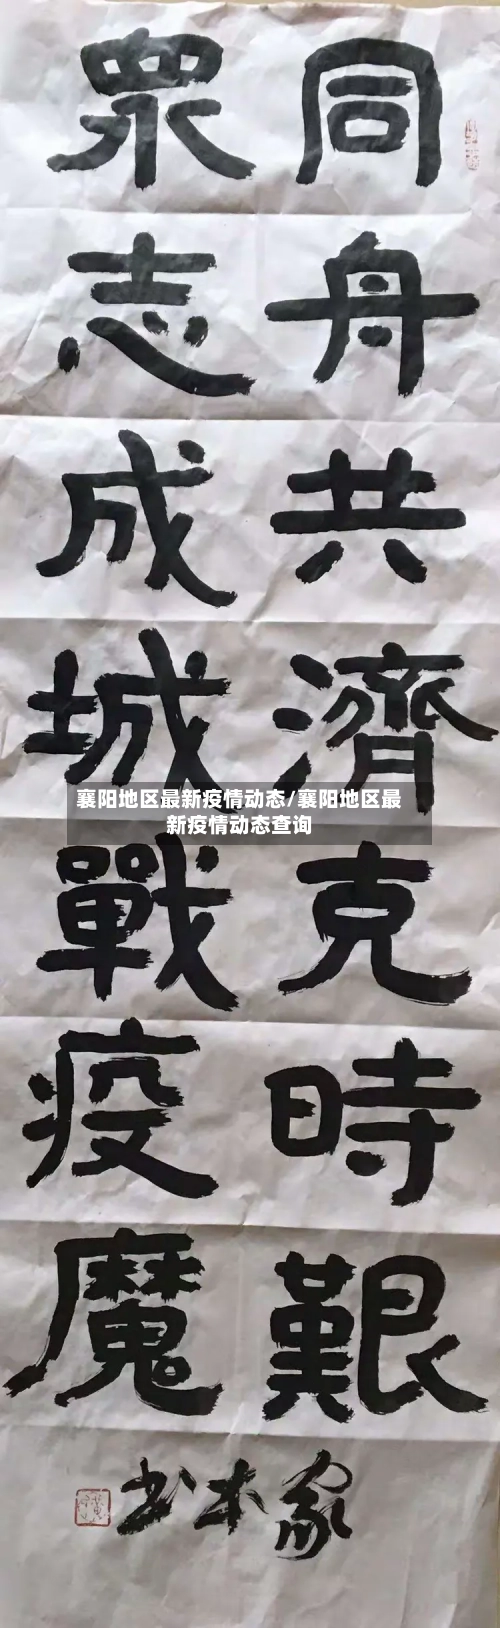 同舟共濟克時艱
眾志成城戰疫魔
家本书
襄阳地区最新疫情动态/襄阳地区最
新疫情动态查询